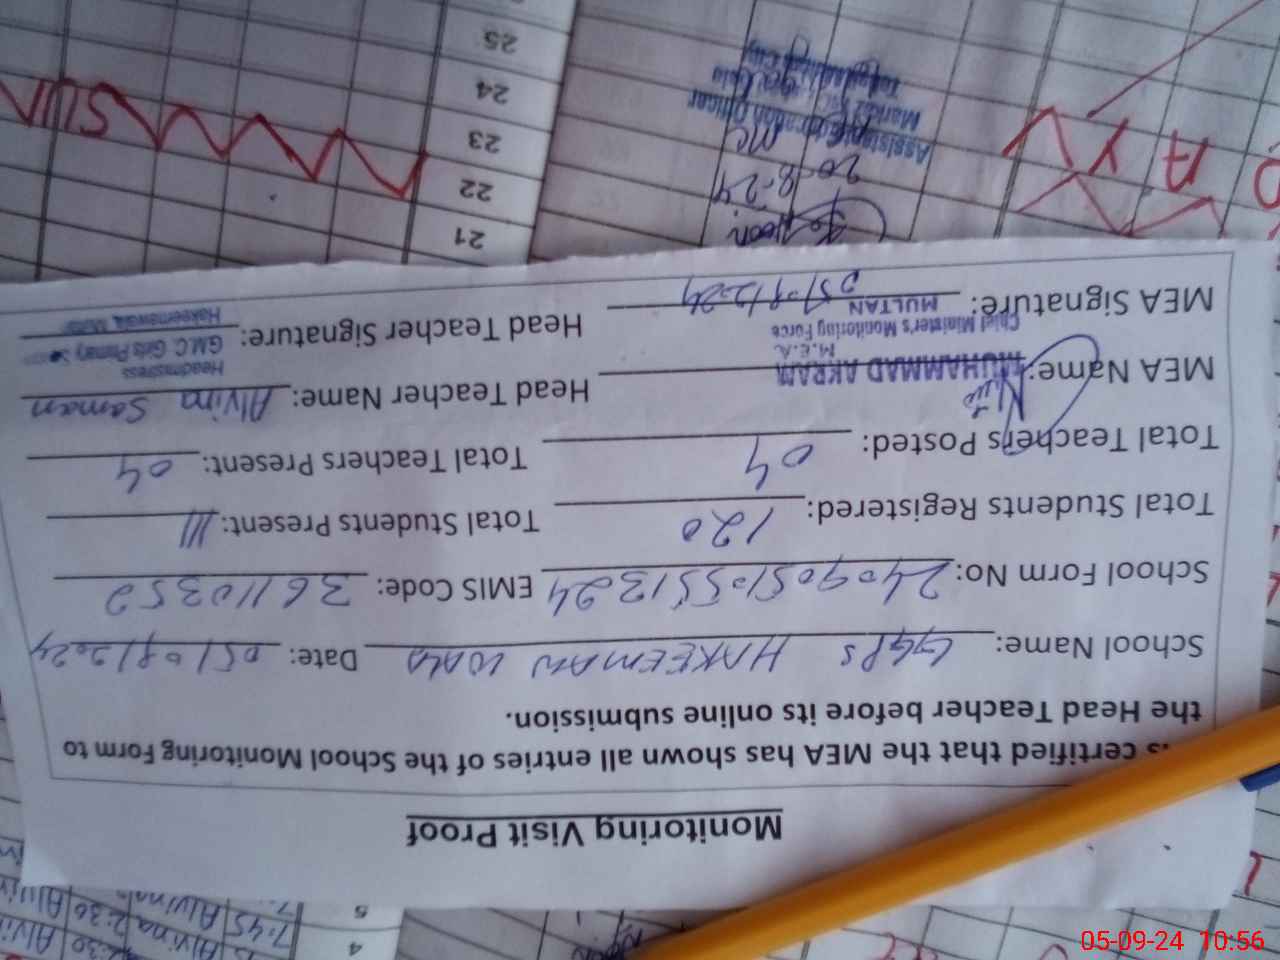 Monitoring Visit Proof
is certified that the MEA has shown all entries of the School Monitoring Form to
the Head Teacher before its online submission.
School Name: GGPS HAKEEMAN WALA Date: 05/09/2024
School Form No: 24090510551324 EMIS Code: 36110352
Total Students Registered: 120 Total Students Present: 111
Total Teachers Posted: 04 Total Teachers Present: 04
MEA Name: MUHAMMAD AKRAM Head Teacher Name: Alvina Saman
M.E.A. Headmistress
Chief Minister's Monitoring Force G.M.C. Girls Primary
MULTAN
MEA Signature: 05/09/2024 Head Teacher Signature:
Noon
20-8-24
Assistant Education Officer
Markaz MC
21
22
23
24
25
SUN
A
4
5
7:45 Alvina 2:30 Alvi
05-09-24 10:56